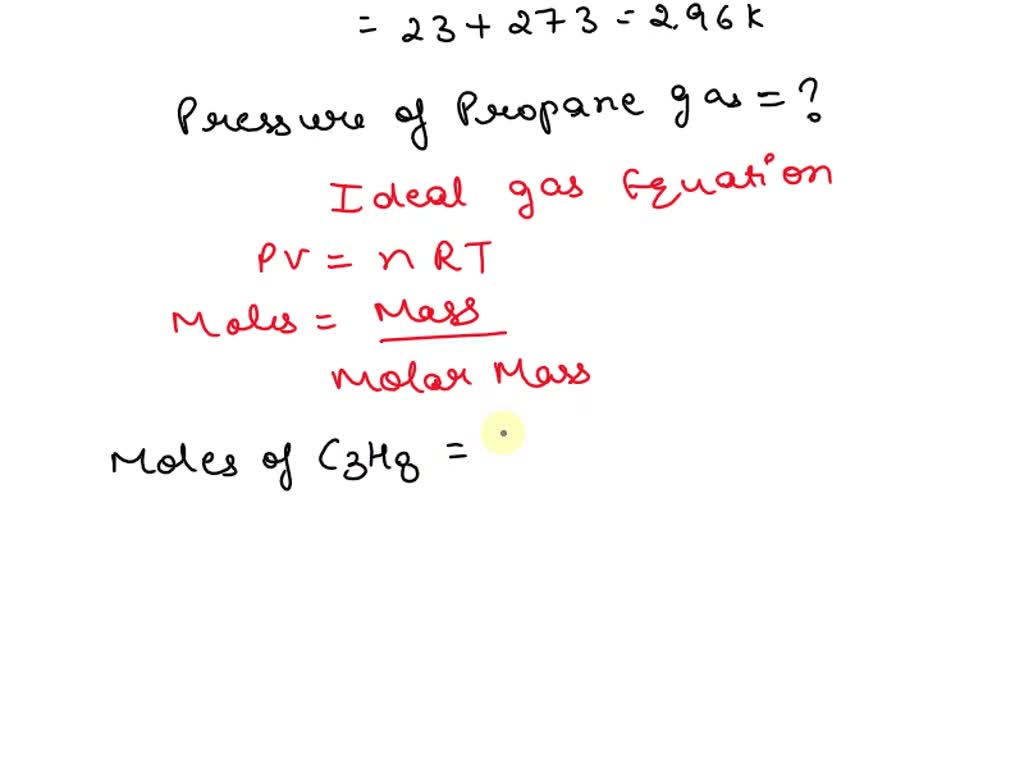 = 23 + 273 = 296 K
Pressure of Propane gas = ?
Ideal gas Equation
PV = nRT
Moles = Mass
Molar Mass
Moles of C3H8 =